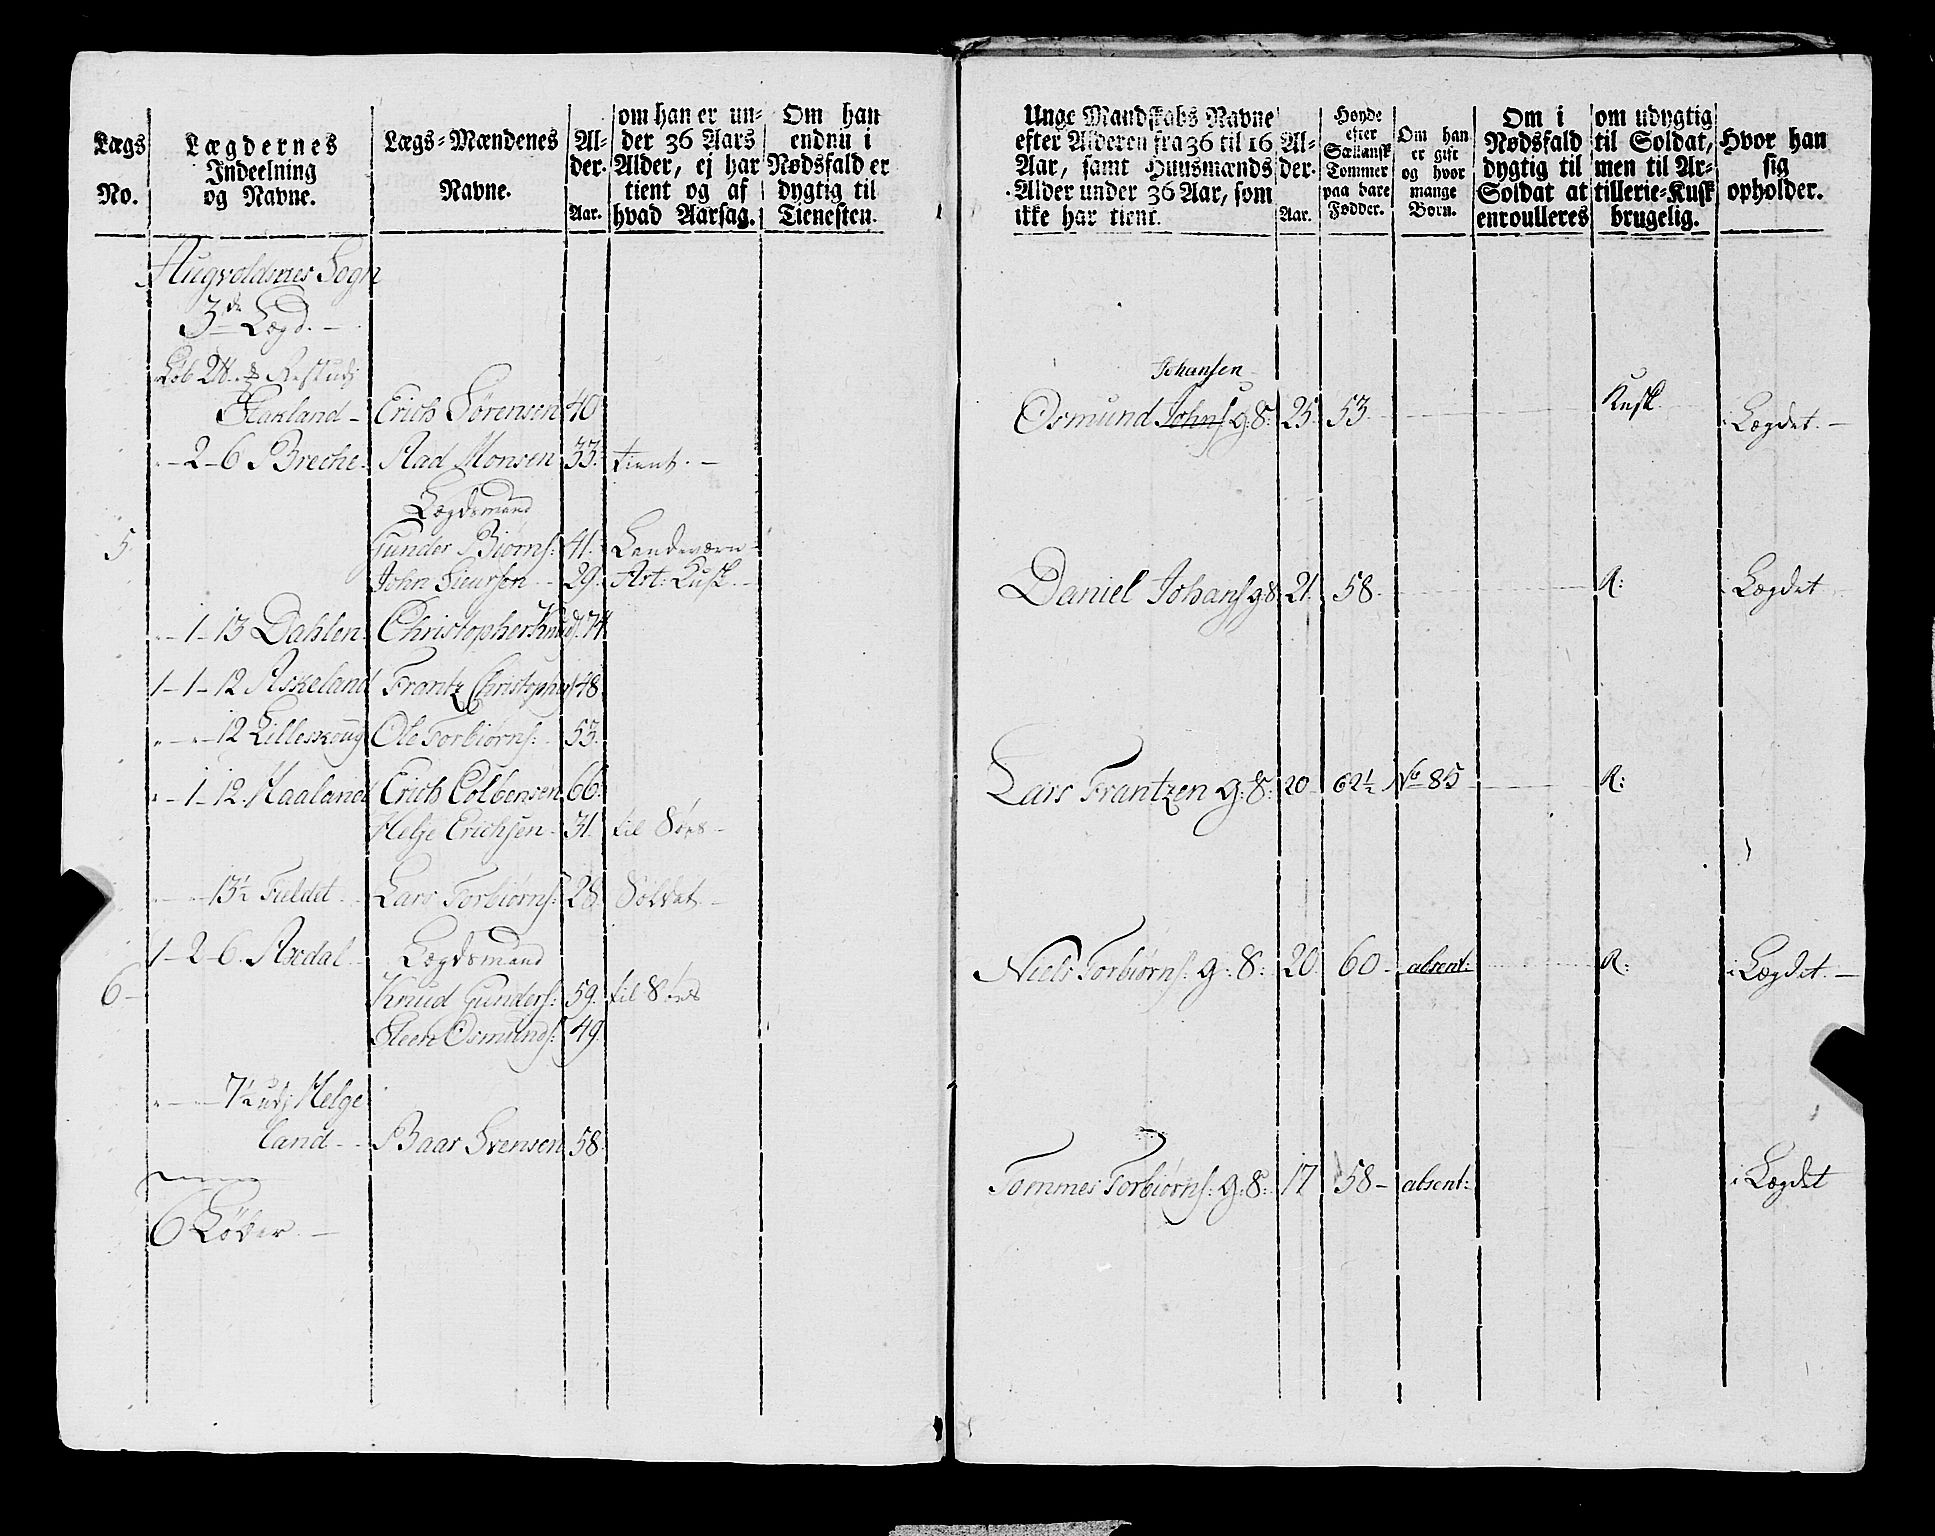 Lægs No.
Lægdernes Indeelning og Navne.
Lægs-Mændenes Navne.
Al-der. Aar.
om han er un-
der 36 Aars
Alder, ej har
tient og af
hvad Aarsag.
Om han
endnu i
Nødsfald er
dygtig til
Tienesten.
Augvoldsnes Sogn
3de Lægd.
Løb 2 ℔
Stakland - Erich Sörensen 40
2-6 Breche Aad Monsen 33. tient.
Lægdsmand
5. Gunder Biørns: 41. Landeværn
John Siursen 29. Art: Kusk.
" 1-13 Dahlen Christopher Knuds. 74
1-1-12 Askeland Frantz Christophers 48
" " 12 Lilleskoug Ole Torbiørns: 53.
" 1-12 Haaland Erich Colbensen 66.
Helje Erichsen 31. til Søes
" " 13½ Fuldet Lars Torbiørns: 28 Soldat
1-2-6. Axdal Lægdsmand
6 Knud Gunders: 59. til Søes
Steen Osmunds: 49.
" " 7½ udj Helge
land - Baar Svensen 58.
6 Løber
Unge Mandskabs Navne
efter Alderen fra 36 til 16
Aar, samt Huusmænds
Alder under 36 Aar, som
ikke har tient.
Al-der. Aar.
Høyde
efter
Sællansk
Tommer
paa bare
Fødder.
Om han
er gift
og hvor
mange
Børn.
Om i
Nødsfald
dygtig til
Soldat at
enroulleres
om udygtig
til Soldat,
men til Ar-
tillerie-Kusk
brugelig.
Hvor han
sig
opholder.
Johansen
Osmund Johns g: S: 25 53. Kusk i Lægdet.
Daniel Johans g S: 21. 58 R: i Lægdet
Lars Frantzen g: S: 20 62½ No 85 R:
Niels Torbiørns: g: S: 20. 60 absent: R: i Lægdet.
Tommes Torbiørns: g: S: 17 58 - absent: i Lægdet